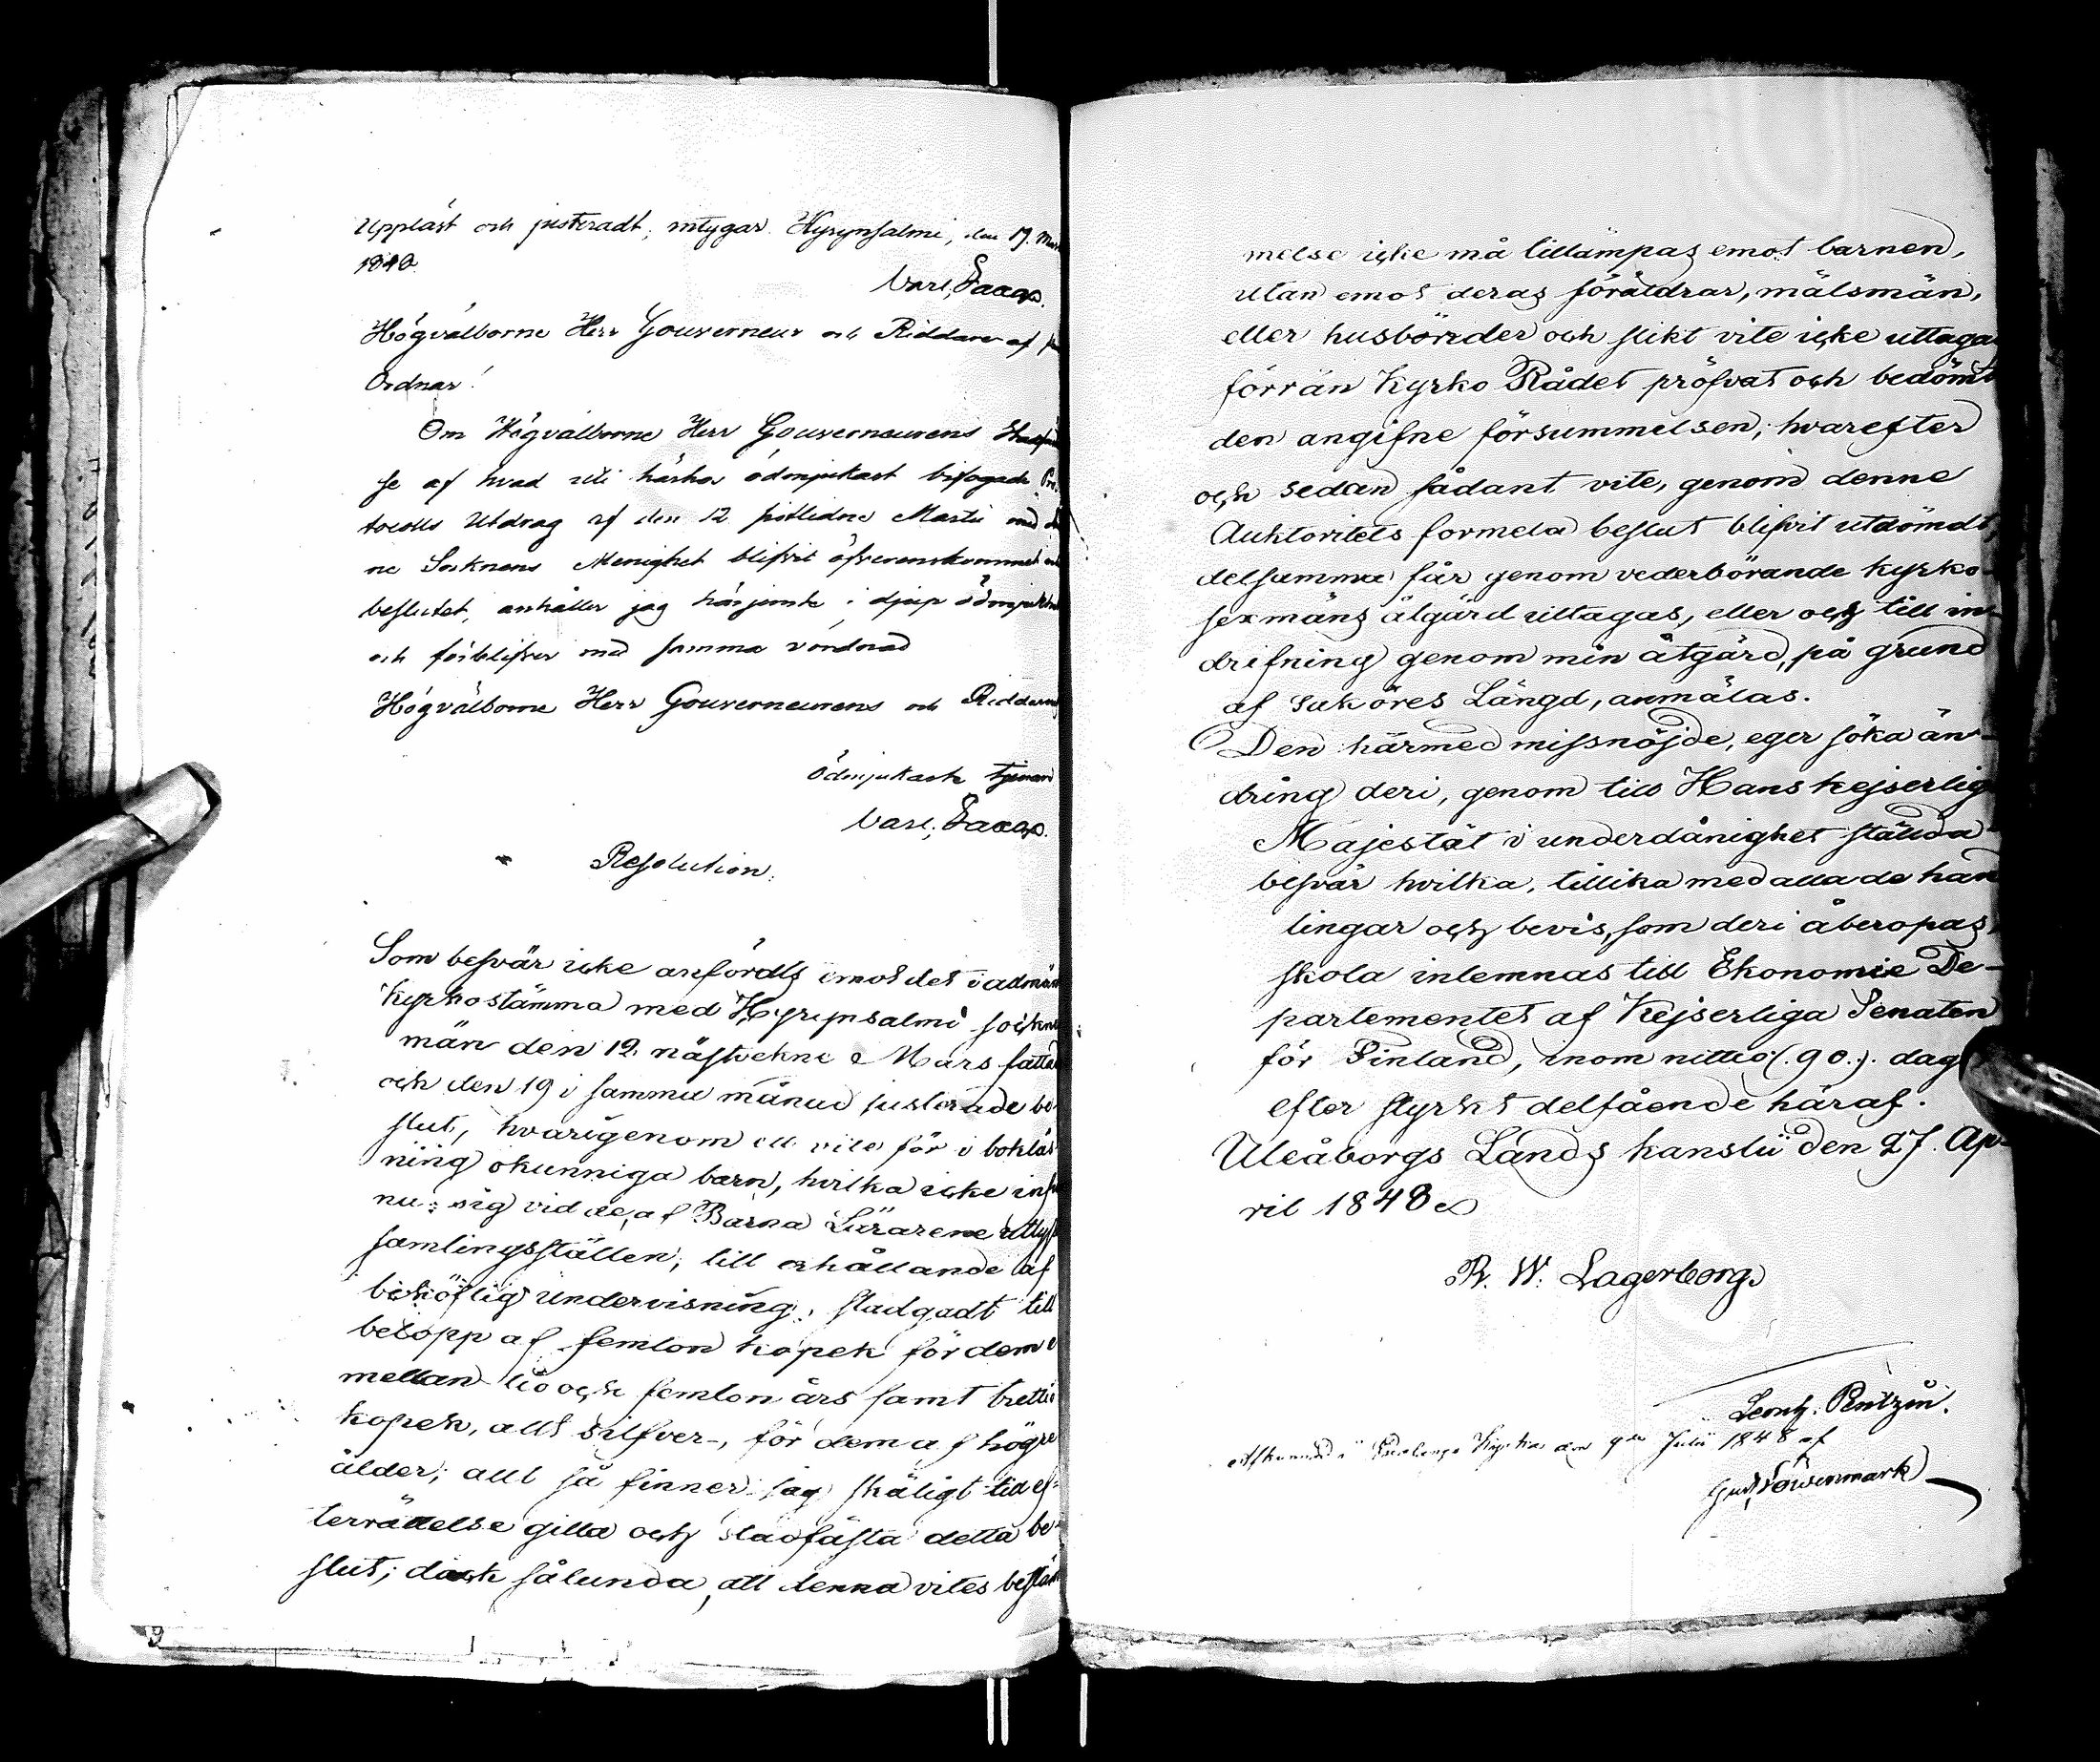 Uppläst och justeradt, intygar. Hyrynsalmi, den 19. Mars
1848.
Carl Saxa
Högvälborne Herr Gouverneur och Riddare af
Ordnar!
Om Högvälborne Herr Gouverneurens
se af hvad uti härhos ödmjukast bifogade Pro-
tocolls Utdrag af den 12 sistlidne Martii med
ne Socknens Menighet blifvit öfverenskommet och
beslutet, anhåller jag härjemte i djup ödmjukhet
och förblifver med samma vördnad
Högvälborne Herr Gouverneurens och Riddarens
ödmjukaste tjenare
Carl Saxa
Resolution.
Som besvär icke anfördts emot det i allmän
Kyrkostämma med Hyrynsalmi sockne
män den 12. nästvekne Mars fattade
och den 19 i samma månad justerade be-
slut, hvarigenom ett vite för i boklä
ning okunniga barn, hvilka icke infin
na sig vid de, af Barna Lärarene utlyst
samlingsställen, till erhållande af
behöflig undervisning, stadgadt till
belopp af femton kopek för dem e
mellan tio och femton års samt trettio
kopek, allt silfver-, för dem af högre
ålder; allt så finner jag skäligt till ef-
terrättelse gilla och stadfästa detta be-
slut; dock sålunda, att denna vites bestäm
melse icke må tillämpas emot barnen,
utan emot deras föräldrar, målsmän,
eller husbönder och slikt vite icke uttagas
förrän Kyrko Rådet pröfvat och bedömt
den angifne försummelsen; hvarefter
och sedan sådant vite, genom denne
Auktoritets formela beslut blifvit utdömdt,
detsamma får genom vederbörande kyrko-
sexmäns åtgärd uttagas, eller och till in-
drifning genom min åtgärd, på grund
af saköres Längd, anmälas.
Den härmed missnöjde, eger söka än-
dring deri, genom till Hans Kejserlig
Majestät i underdånighet ställda
besvär hvilka, tillika med alla de hand
lingar och bevis, som deri åberopas,
skola inlemnas till Ekonomie De-
partementet af Kejserliga Senaten
för Finland, inom nittio (90.) dagar
efter styrkt delfående häraf.
Uleåborgs Lands kansli den 27. Ap-
ril 1848.
R. W. Lagerborg
Leonh. Pentzin.
Afkunnad i Kyrka den 9de Julii 1848 af
Gust. Löwenmark